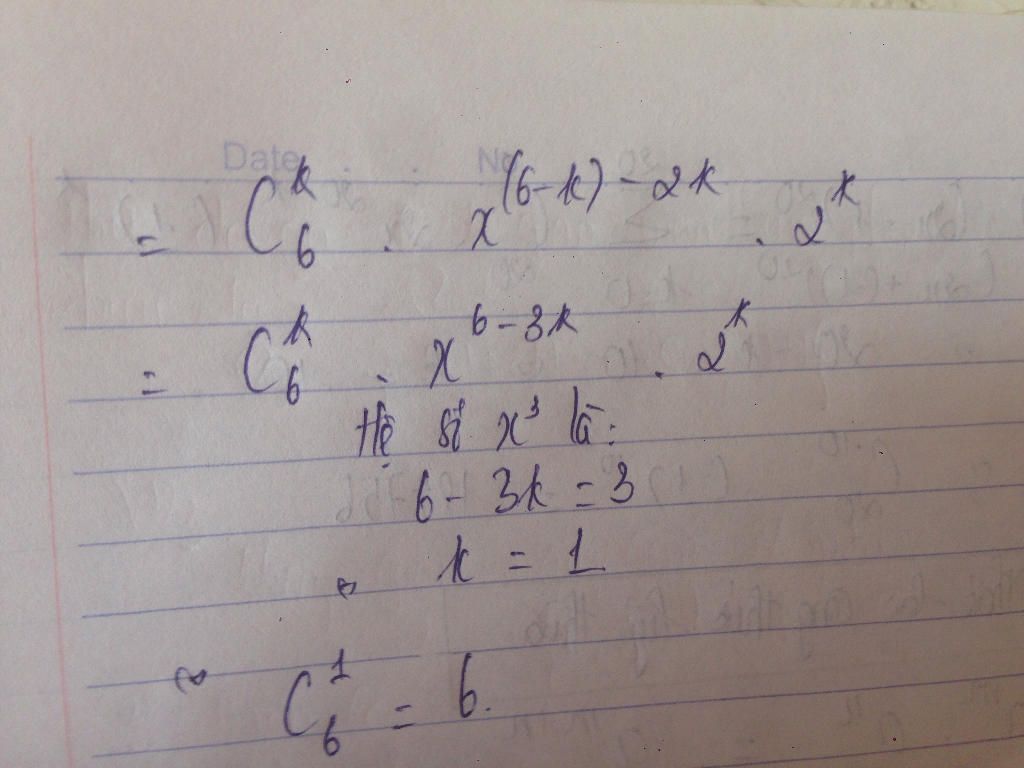 Date No
= C₆ᵏ . x⁽⁶⁻ᵏ⁾⁻²ᵏ . 2ᵏ
= C₆ᵏ . x⁶⁻³ᵏ . 2ᵏ
Hệ số x³ là:
6 - 3k = 3
k = 1
C₆¹ = 6.